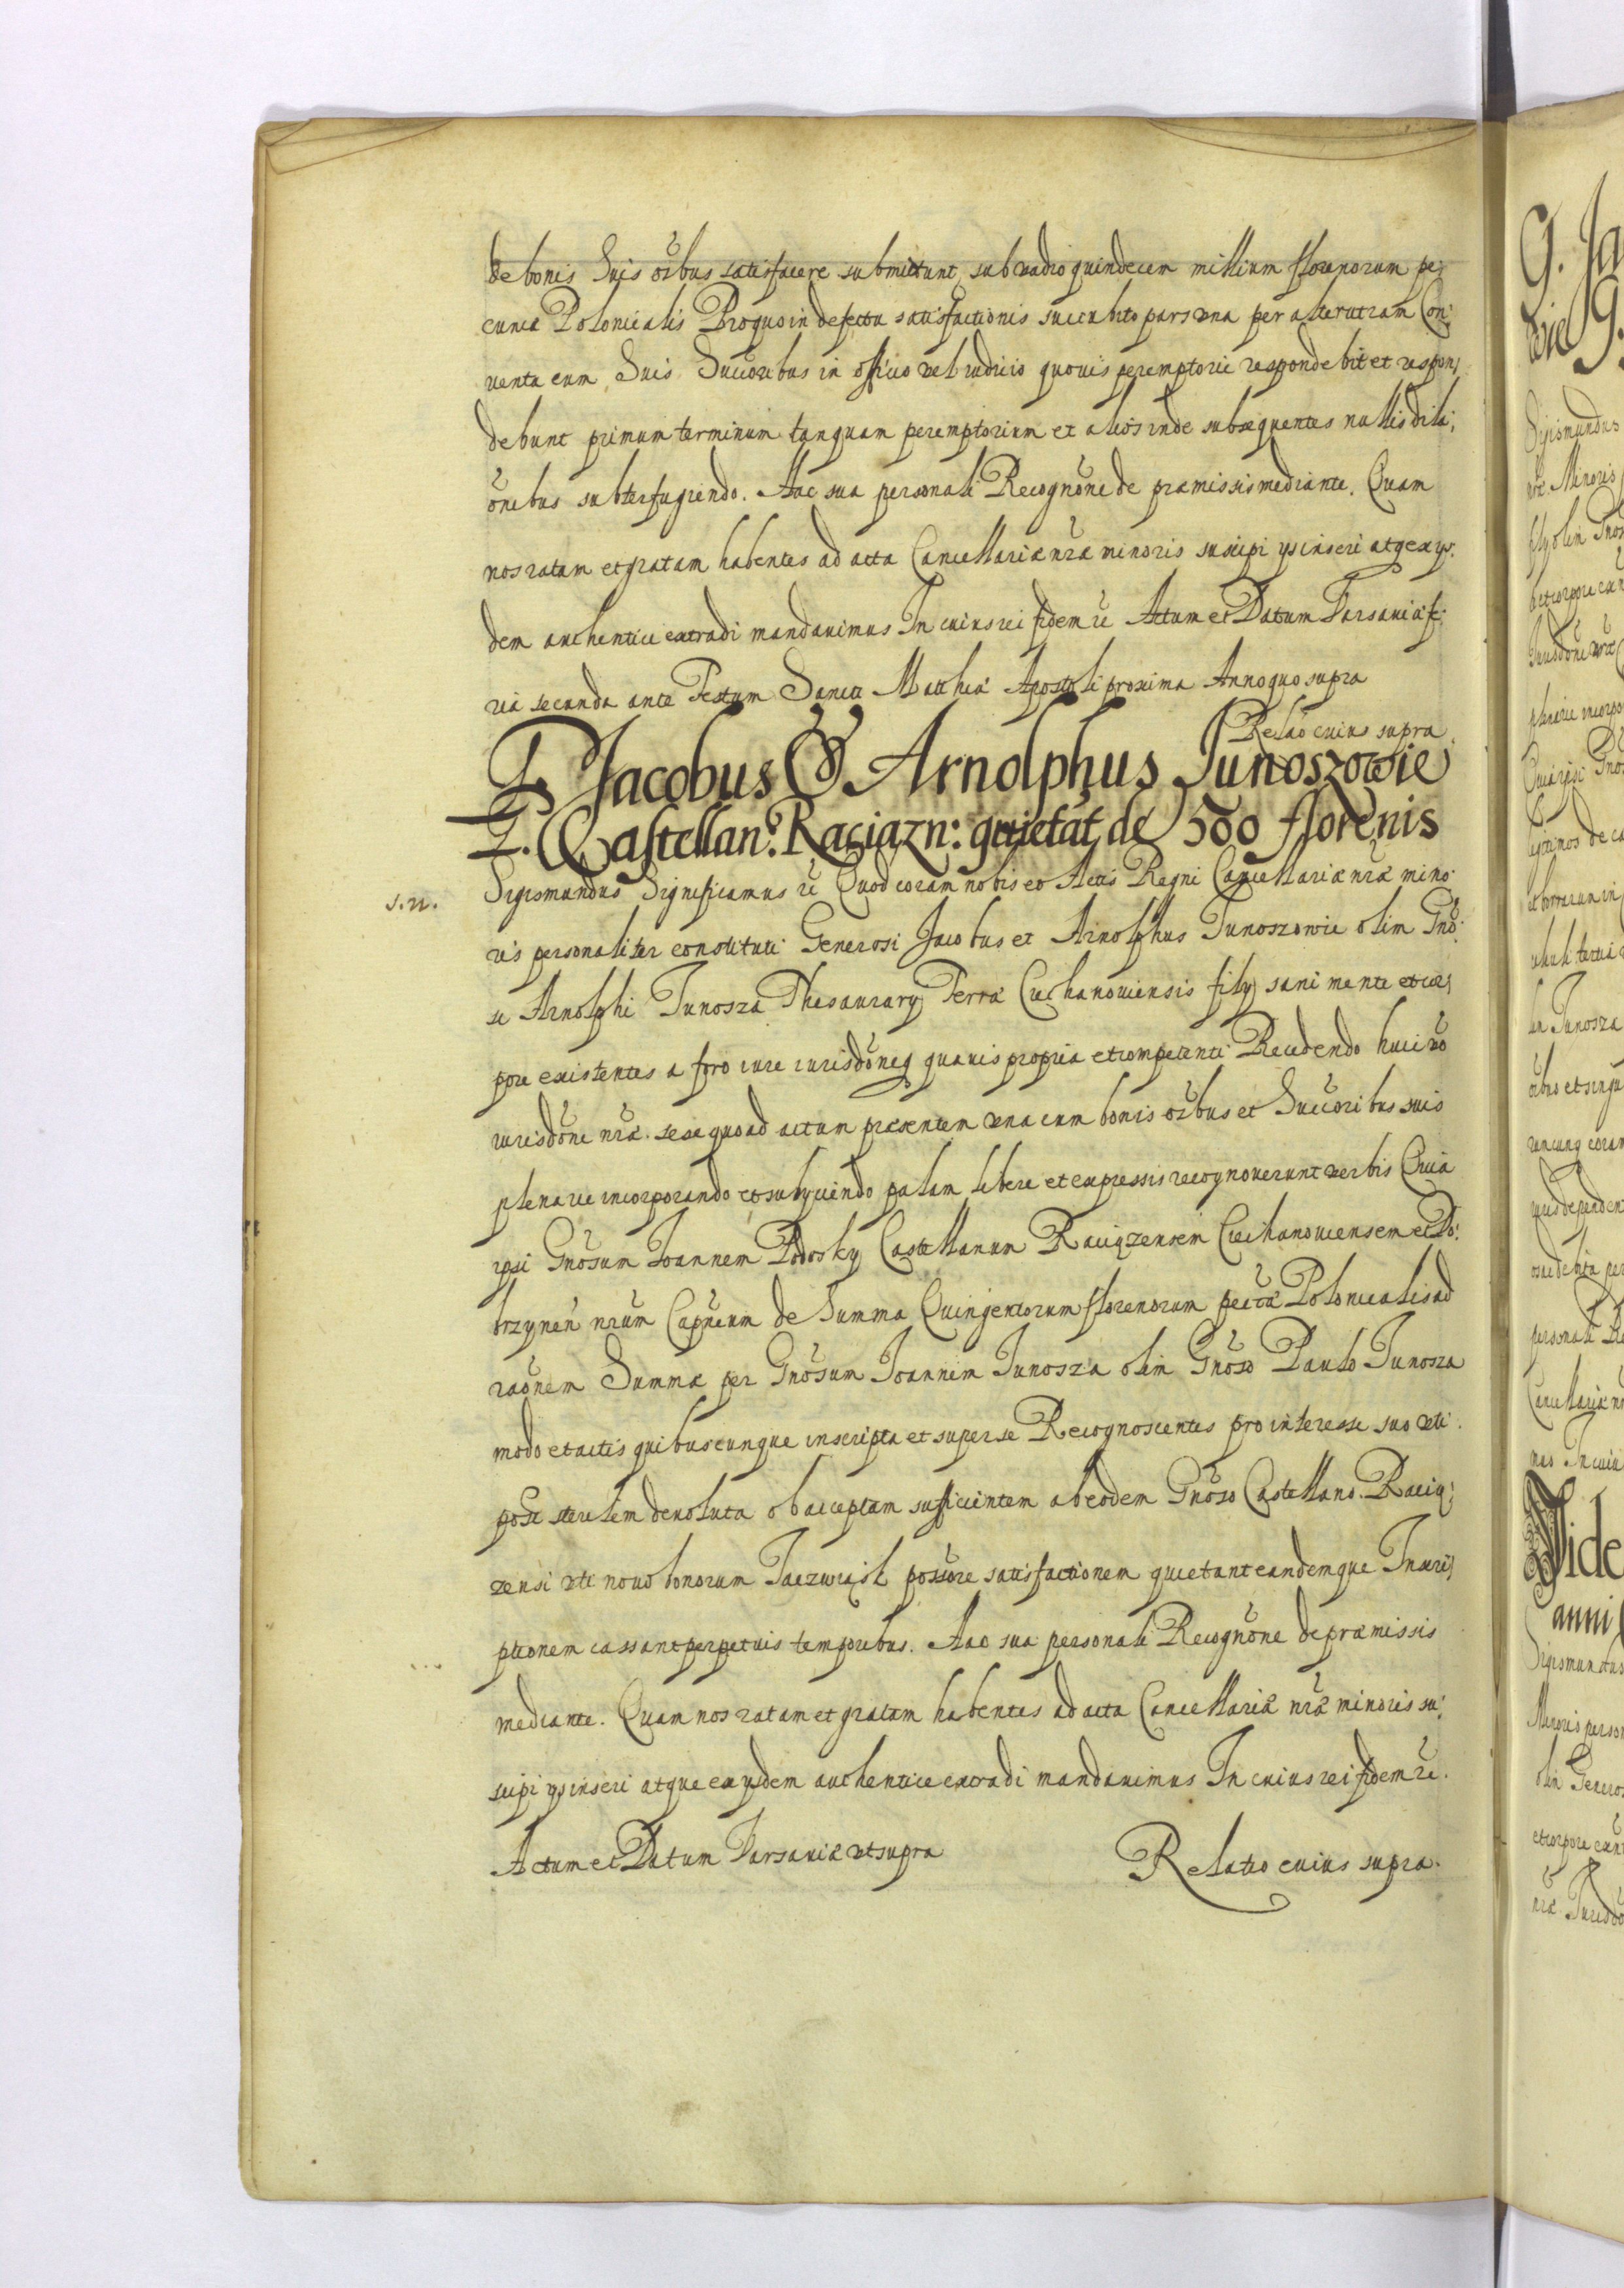 de bonis Suis oibus satisfacere submittunt, sub vadio quindecem millium florenorum pe,
cuniæ Polonicalis Pro quo in defectu satisfactionis succubito pars una per alterutram Con,
venta cum Suis Succoribus in officio vel iudicio quovis peremptorie respondebit et respon,
debunt primum terminum tanquam peremptorium et alios inde subsequentes nullis dila,
onibus subterfugiendo. Hac sua personali Recognone de præmissis mediante. Quam
nos ratam et gratam habentes ad acta Cancellariæ nræ minoris suscipi ysinseri atqe exys,
dem authentice extradi mandavimus In cuius rei fidem &c Actum et Datum Varsaviæ fe,
ria secunda ante Festum Sancti Matthiæ Apostoli proxima Anno quo supra
Relao cuius supra
G. Jacobus & Arnolphus Junoszowie
G. Castellan: Raciązn: quietat de 500 florenis
s.n.
Sigismundus Significamus &c Quod coram nobis et Actis Regni Cancellariæ nræ mino,
ris personaliter constituti Generosi Jacobus et Arnolphus Junoszowie olim Gno,
si Arnolphi Junosza Thesaurary Terræ Ciechanoviensis fily sani mente et cor,
pore existentes a foro iure iurisdoneq quavis propria et competenti Recedendo huic vo
iurisdone nræ. sese quoad actum præsentem una cum bonis oibus et Succoribus suis
plenarie incorporando et subyciendo palam libere et expressis recognoverunt verbis Quia
ipsi Gnosum Joannem Podosky Castellanum Raciązensem Ciechanoviensem et Do,
brzynen nrum Capneum de Summa Quingentorum florenorum pecuæ Polonicalis ad
raonem Summæ per Gnosum Joannem Junosza olim Gnoso Paulo Junosza
modo et actis quibuscunque inscripta et super se Recognoscentes pro interesse suo uti
post sterilem devoluta ob acceptam sufficientem ab eodem Gnoso Castellano Racią,
zensi uti novo bonorum possore satisfactionem quietant eandemque Inscri,
ptionem cassant perpetuis temporibus. Hac sua personali Recognone de præmissis
mediante. Quam nos ratam et gratam habentes ad acta Cancellariæ nræ minoris su,
scipi ysinseri atque exysdem authentice extradi mandavimus In cuius rei fidem &c.
Actum et Datum Varsaviæ ut supra
Relatio cuius supra.